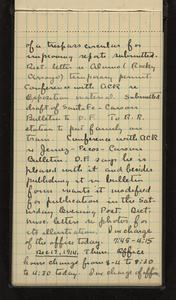 of a trespass circular for
improving reports submitted.
Rec'd letter re Alamo (Rocky
Arroyo) temporary permit.
Conference with ACR re
Exposition material. Submitted
draft of Santa Fe - Carson
Bulletin to D.F. To R.R.
station to put family on
train. Conference with ACR
re Jemez-Pecos-Carson
Bulletin. D.F. says he is
pleased with it and besides
publishing it in bulletin
form wants it modified
for publication in the Sat-
urday Evening Post. Dict
more letters re photos for
its illustration. I'm charge
of the office today. 7:45-4:15
Dec 17, 1914. Thurs. Office
hours change from 8-4 to 8:30
to 4:30 today. I'm charge of office